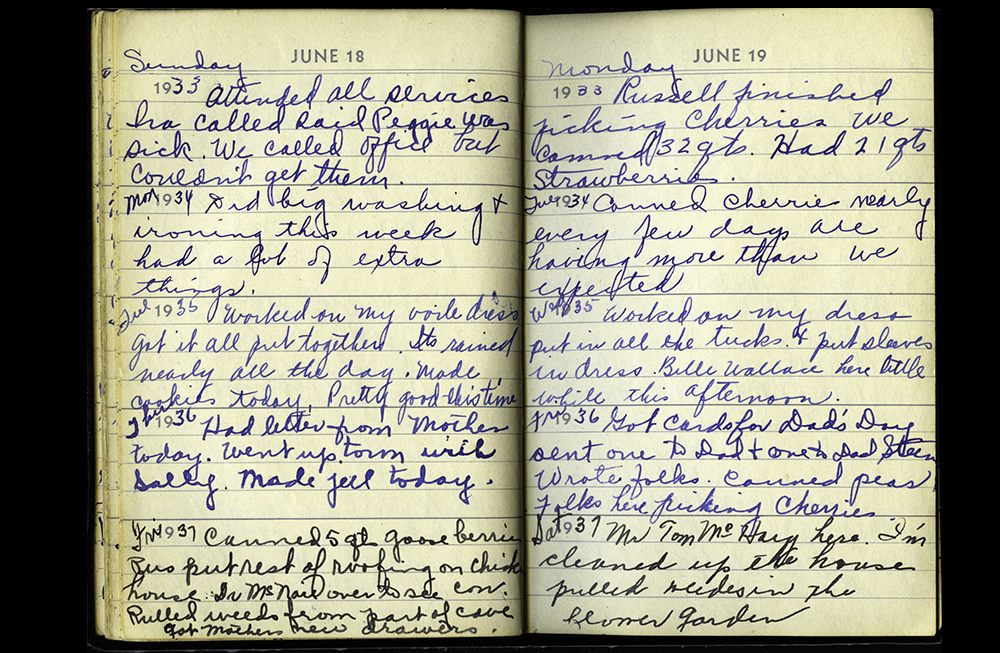 JUNE 18
Sunday
1933 Attended all services
Ira called said Peggie was
sick. We called office but
couldn't get them.
Mon 1934 Did big washing &
ironing this week
had a lot of extra
things.
Tue 1935 Worked on my voile dress
got it all put together. Its rained
nearly all the day. Made
cookies today. Pretty good this time
Thur 1936 Had letter from Mother
today. Went up town with
Sally. Made jell today.
Fri 1937 Canned 5 qt gooseberries
Gus put rest of roofing on chick
house. Dr McNair over to see cow.
Pulled weeds from part of cave
got Mothers new drawers.
JUNE 19
Monday
1933 Russell finished
picking Cherries We
canned 32 qts. Had 21 qts
Strawberries.
Tue 1934 Canned cherries nearly
every few days are
having more than we
expected
Wed 1935 Worked on my dress
put in all the tucks. & put sleeves
in dress. Belle Wallace here little
while this afternoon.
Fri 1936 Got cards for Dad's Day
sent one to Dad & one to Dad
Wrote folks. Canned peas
Folks here picking Cherries
Sat 1937 Mr Tom Mc here. I'm
cleaned up the house
pulled weeds in the
flower garden